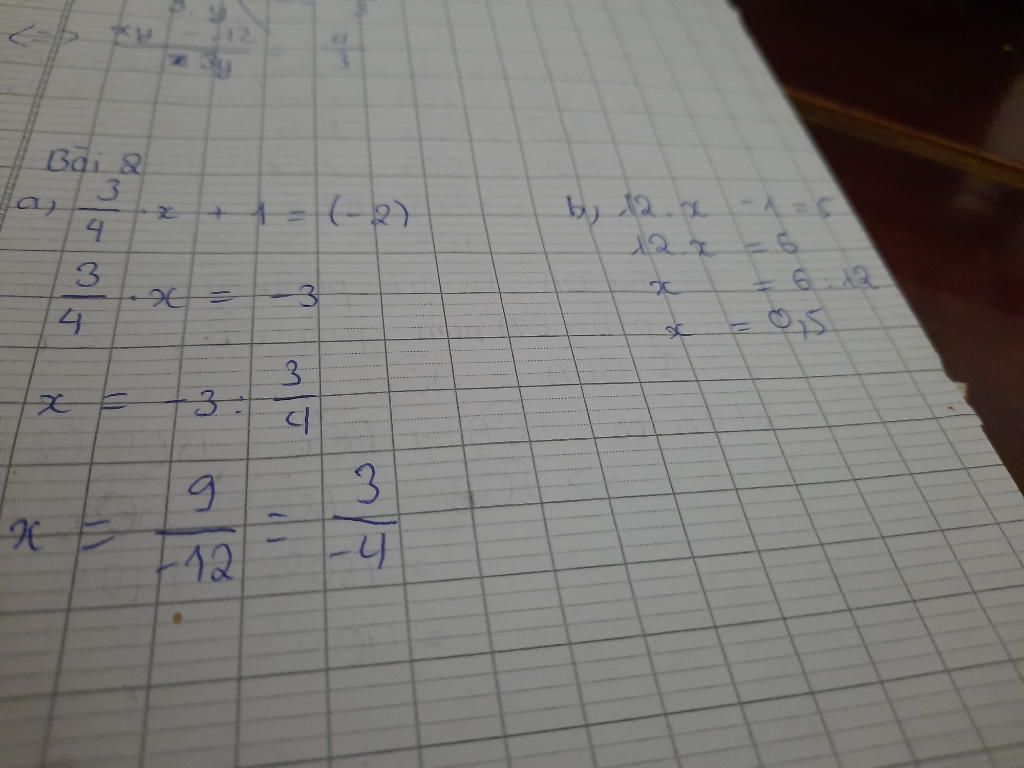 <=> xy - 12 / 3y = y / 3
Bài 2
a, 3/4 . x + 1 = (-2)
3/4 . x = -3
x = -3 : 3/4
x = 9/-12 = 3/-4
b, 12 . x - 1 = 5
12 . x = 6
x = 6 : 12
x = 0,5